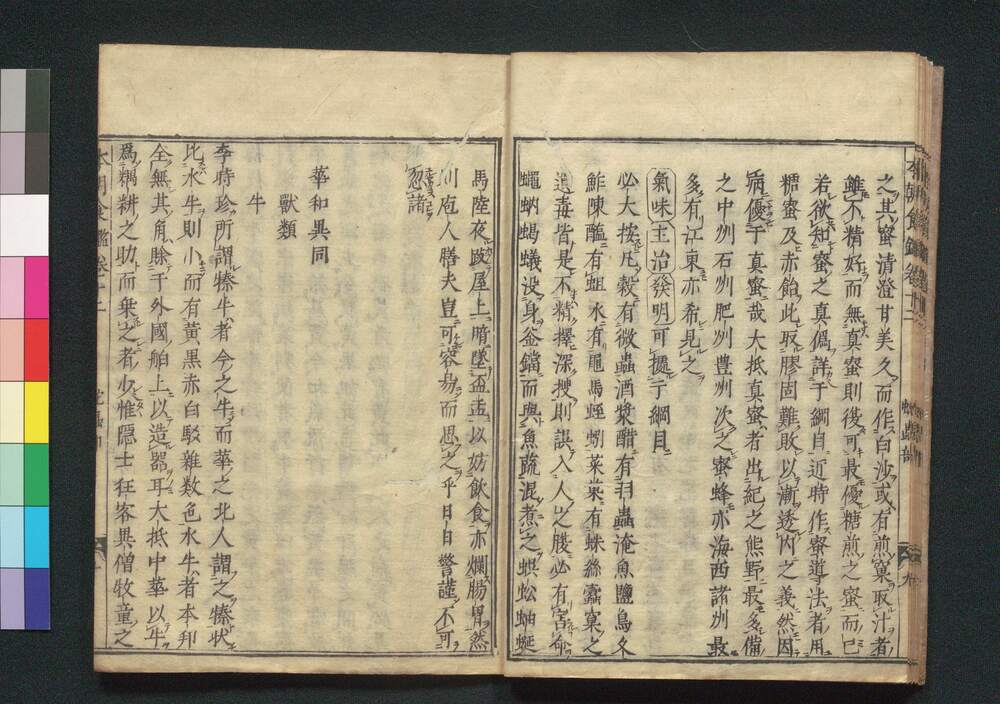 之其蜜清澄甘美久而作白沙或有煎窠取汁者
雖不精好而無真蜜則後可最優糖煎之蜜而已
若欲知蜜之真偽詳于綱目近時作蜜導法者用
糖蜜及赤飴此取膠固難敗以漸透內之義然因
病優于真蜜哉大抵真蜜者出紀之熊野最多備
之中州石州肥州豊州次之蜜蜂亦海西諸州最
多有江東亦希見之
氣味主治發明可據于綱目
必大按凡穀有微蟲酒漿醋有羽蟲淹魚鹽鳥久
鮓陳醢有蛆水有黽馬蛭蚓菜菓有蛛絲蠹窠之
遺毒皆是不精擇深搜則誤入人之腹必有害命
蠅蚋蝎蟻没身釜鐺而與魚蔬混煮之蜈蚣蚰蜒
馬陸夜毆屋上暗墜盃盂以妨飲食亦爛腸胃然
則庖人膳夫豈可容易而思之乎日日警謹不可
忽諸
華和異同
獸類
牛
李時珍所謂㹍牛者今之牛而華之北人謂之㹍狀
比水牛則小而有黃黒赤白駁雜数色水牛者本邦
全無其角賒于外國舶上以造器耳大抵中華以牛
為耦耕之助而乗之者少惟隠士狂客異僧牧童之
本朝食鑑卷十二